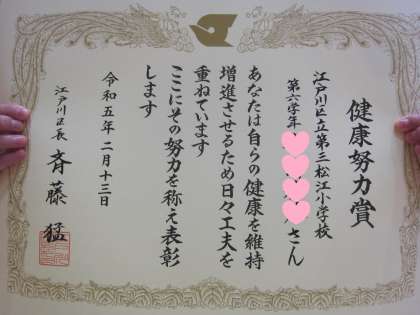 健康努力賞
江戸川区立第三松江小学校
第六学年
さん
あなたは自らの健康を維持
増進させるため日々工夫を
重ねています
ここにその努力を称え表彰
します
令和五年二月十三日
江戸川区長 斉藤 猛